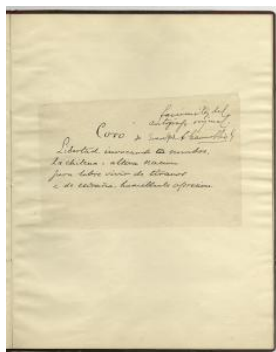 facsimile del
autógrafo
Coro de
Libertad invocando tu nombre,
la chilena i altiva Nacion
jura libre vivir de tiranos
i de estraña, humillante opresion.